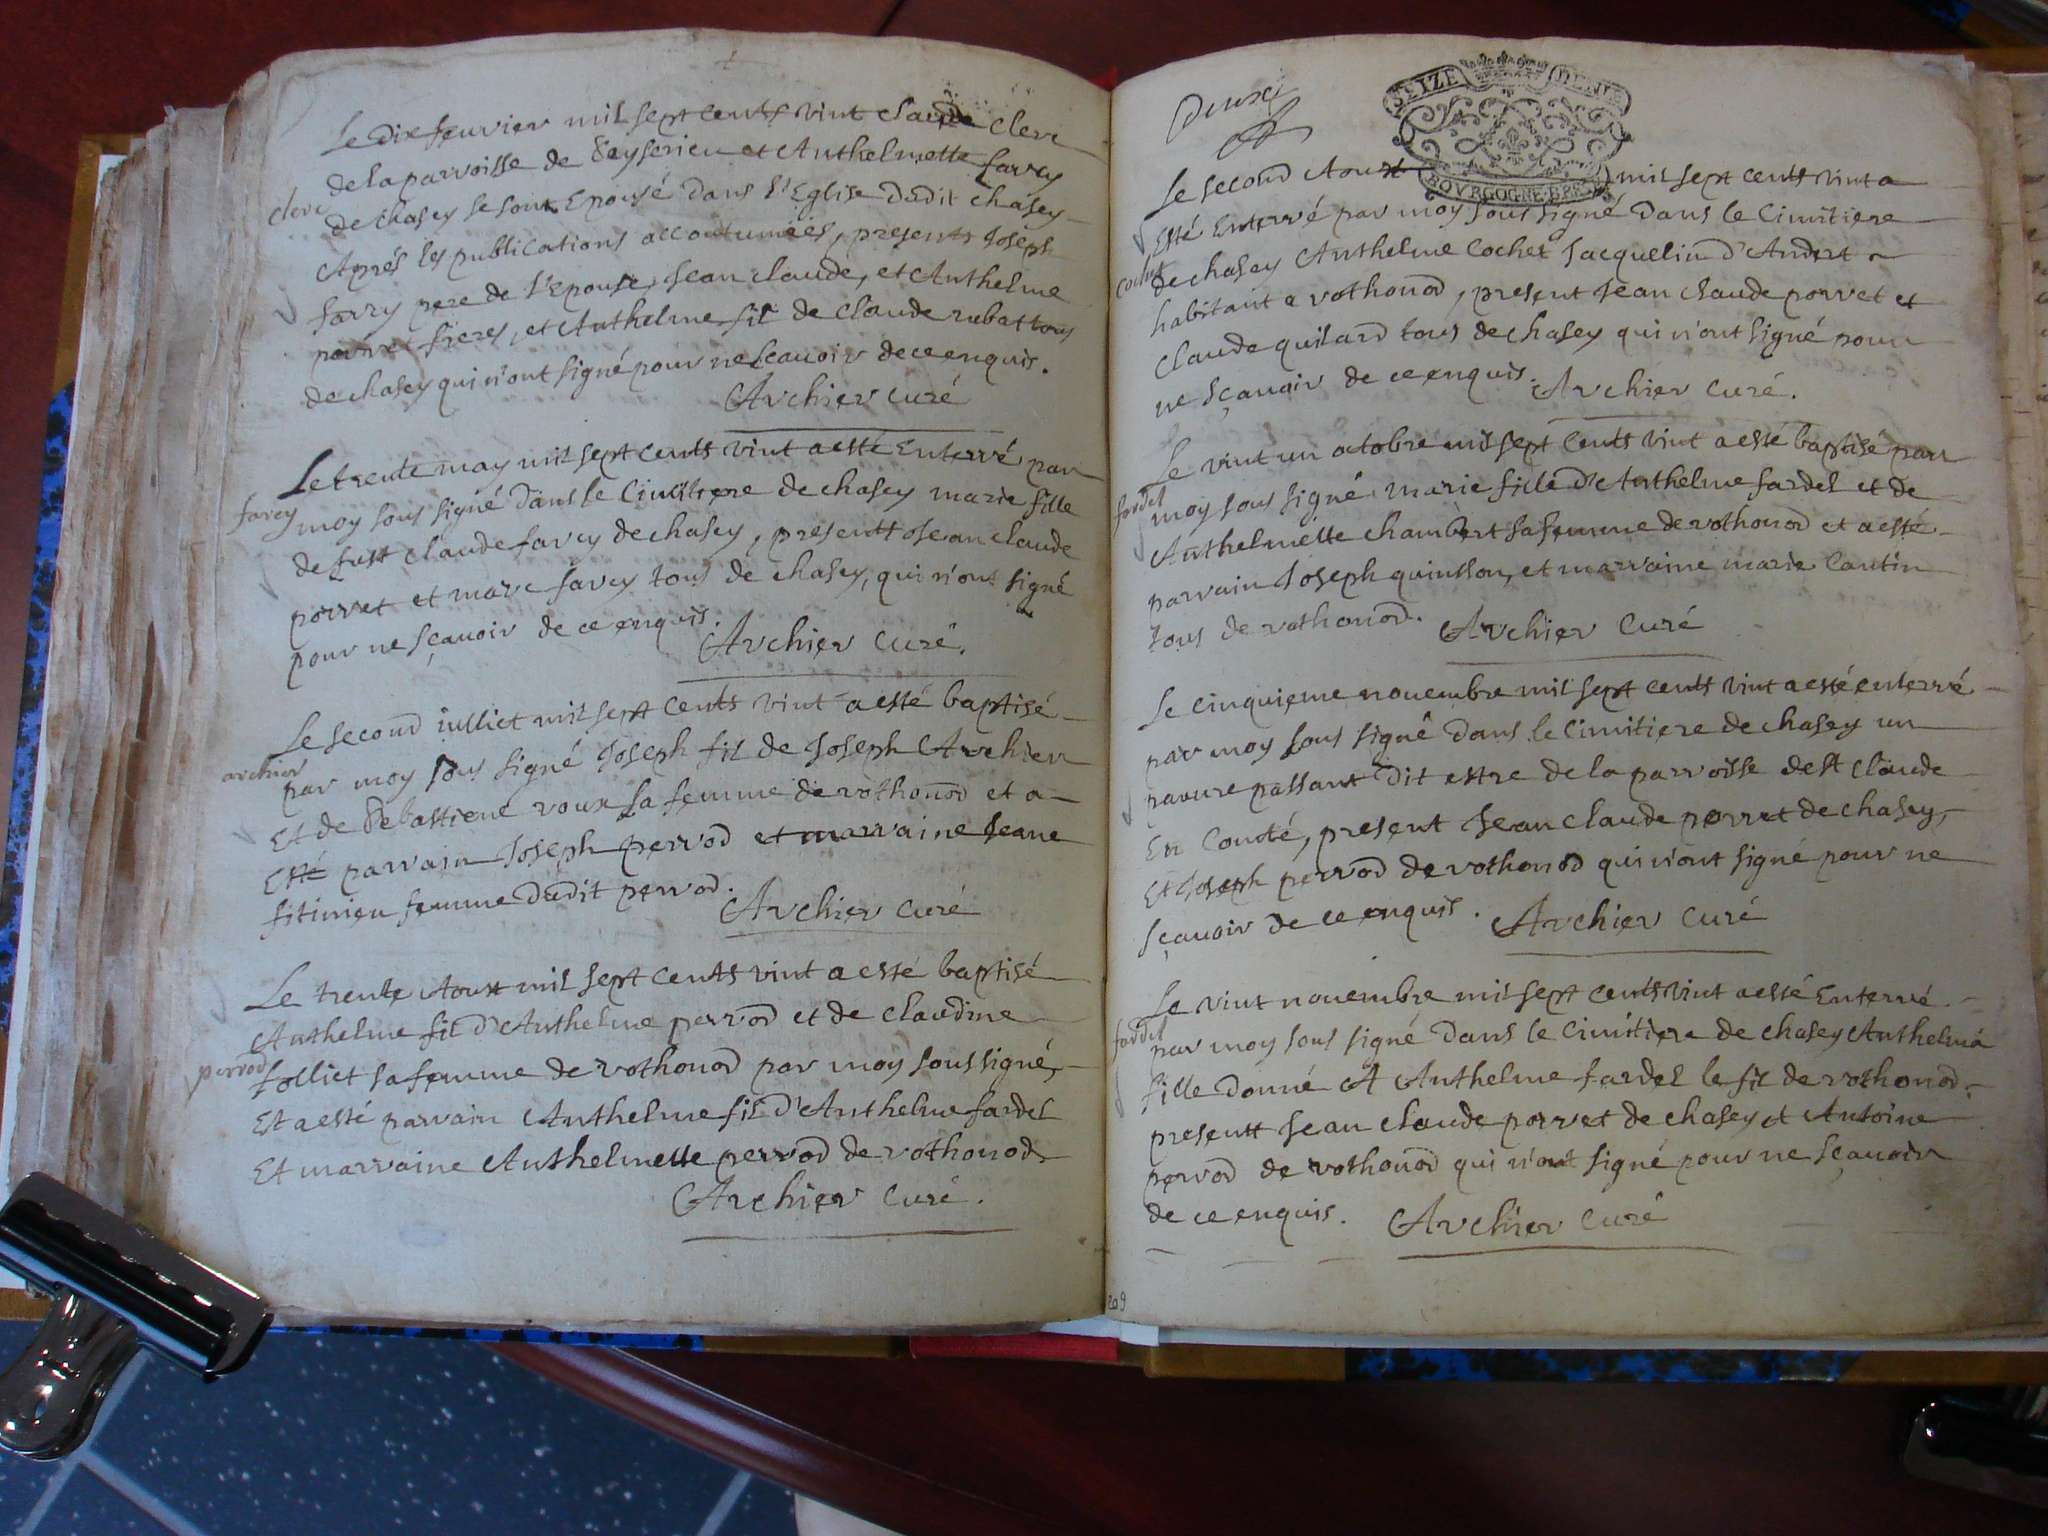 Le dix feuvrier mil sept cents vint claude clerc
de la parroisse de Seyserieu et Anthelmette farcy
clerc
de chasey se sont Epousé dans l'Eglise dudit chasey
Aprés les publications accoutumées, presents Joseph
farcy pere de l'Epouse, Jean claude, et Anthelme
porret freres, et Anthelme fil de claude rubat tous
de chasey qui n'ont signé pour ne scauoir de ce enquis.
Archier curé
Le trente may mil sept cents vint a esté Enterré par
farcy
moy sous signé dans le Cimitiere de chasey marie fille
de fust claude farcy de chasey, presentt Jean claude
porret et marc farcy tous de chasey, qui n'ont signé
pour ne sçauoir de ce enquis.
Archier curé.
Le second iulliet mil sept cents vint a esté baptisé
archier
par moy sous signé Joseph fil de Joseph Archier
Et de Sebastiene roux sa femme de vothonod et a
Esté parrain Joseph perrod et marraine Jeane
fitinieu femme dudit perrod.
Archier curé
Le trente Aoust mil sept cents vint a esté baptisé
Anthelme fil d'Anthelme perrod et de claudine
perrod
folliet sa femme de vothonod par moy soussigné,
Et a esté parrain Anthelme fil d'Anthelme fardel
Et marraine Anthelmette perrod de vothonod
Archier curé.
SEIZE DENIE
BOVRGOGNE BRES
Le second Aoust mil sept cents vint a
Esté Enterré par moy sous signé dans le Cimitiere
cochet
de chasey Anthelme Cochet Jacquelin d'Andert
habitant a vothonod, present Jean claude porret et
Claude quilard tous de chasey qui n'ont signé pour
ne sçauoir de ce enquis.
Archier curé.
Le vint un octobre mil sept cents vint a esté baptisé par
fardel
moy sous signé marie fille d'Anthelme fardel et de
Anthelmette chambert sa femme de vothonod et a esté
parrain Joseph quinson, et marraine marie Cantin
tous de vothonod.
Archier curé
Le cinquieme nouembre mil sept cents vint a esté enterré
par moy sous signé dans le Cimitiere de chasey un
pauure passant dit estre de la parroisse de st Claude
En Comté, present Jean claude porret de chasey,
Et Joseph perrod de vothonod qui n'ont signé pour ne
sçauoir de ce enquis.
Archier curé
Le vint nouembre mil sept cents vint a esté Enterré
fardel
par moy sous signé dans le Cimitiere de chasey Anthelma
fille donné A Anthelme fardel le fil de vothonod.
presentt Jean claude porret de chasey et Antoine
perrod de vothonod qui n'ont signé pour ne sçauoir
de ce enquis.
Archier curé
209